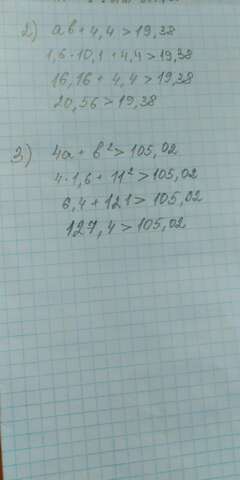 2) ab + 4,4 > 19,38
1,6 · 10,1 + 4,4 > 19,38
16,16 + 4,4 > 19,38
20,56 > 19,38
3) 4a + b² > 105,02
4 · 1,6 + 11² > 105,02
6,4 + 121 > 105,02
127,4 > 105,02